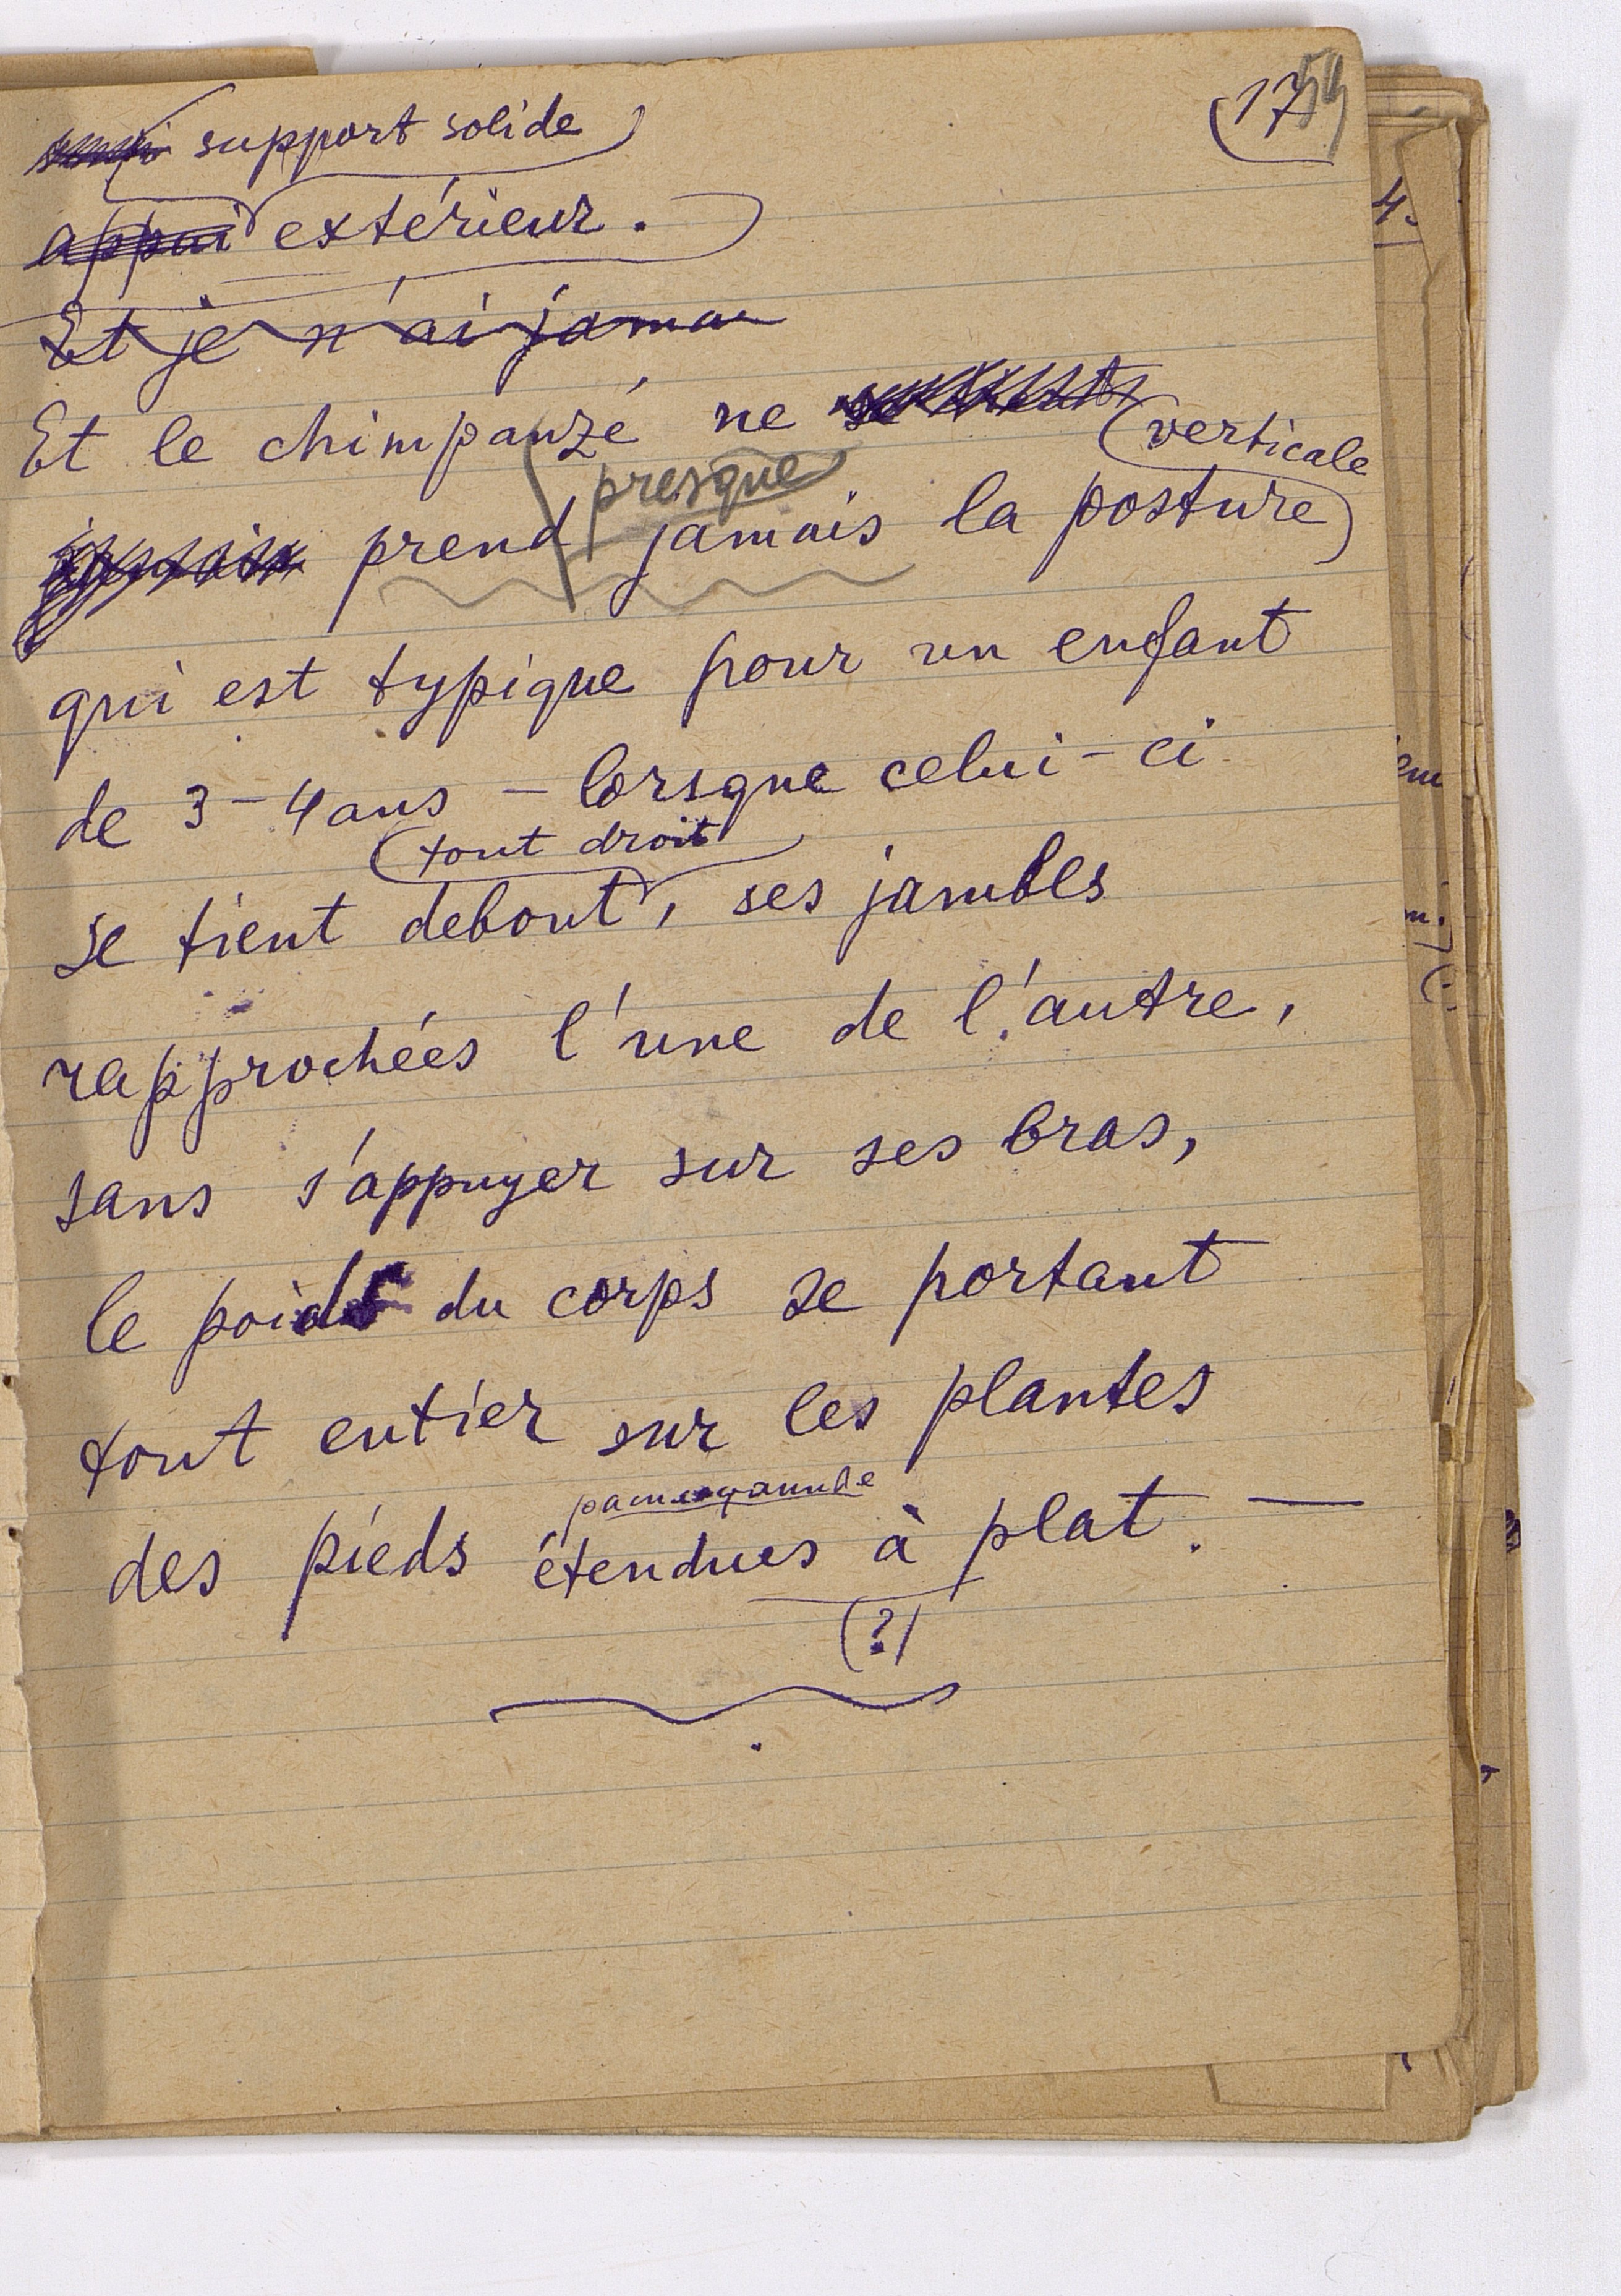 17 54
support solide
appui extérieur.
Et je n'ai jama
Et le chimpanzé ne
verticale
presque
prend jamais la posture
qui est typique pour un enfant
de 3-4 ans - lorsque celui-ci
tout droit
se tient debout, ses jambes
rapprochées l'une de l'autre,
sans s'appuyer sur ses bras,
le poids du corps se portant
tout entier sur les plantes
des pieds étendues à plat. —
(?)